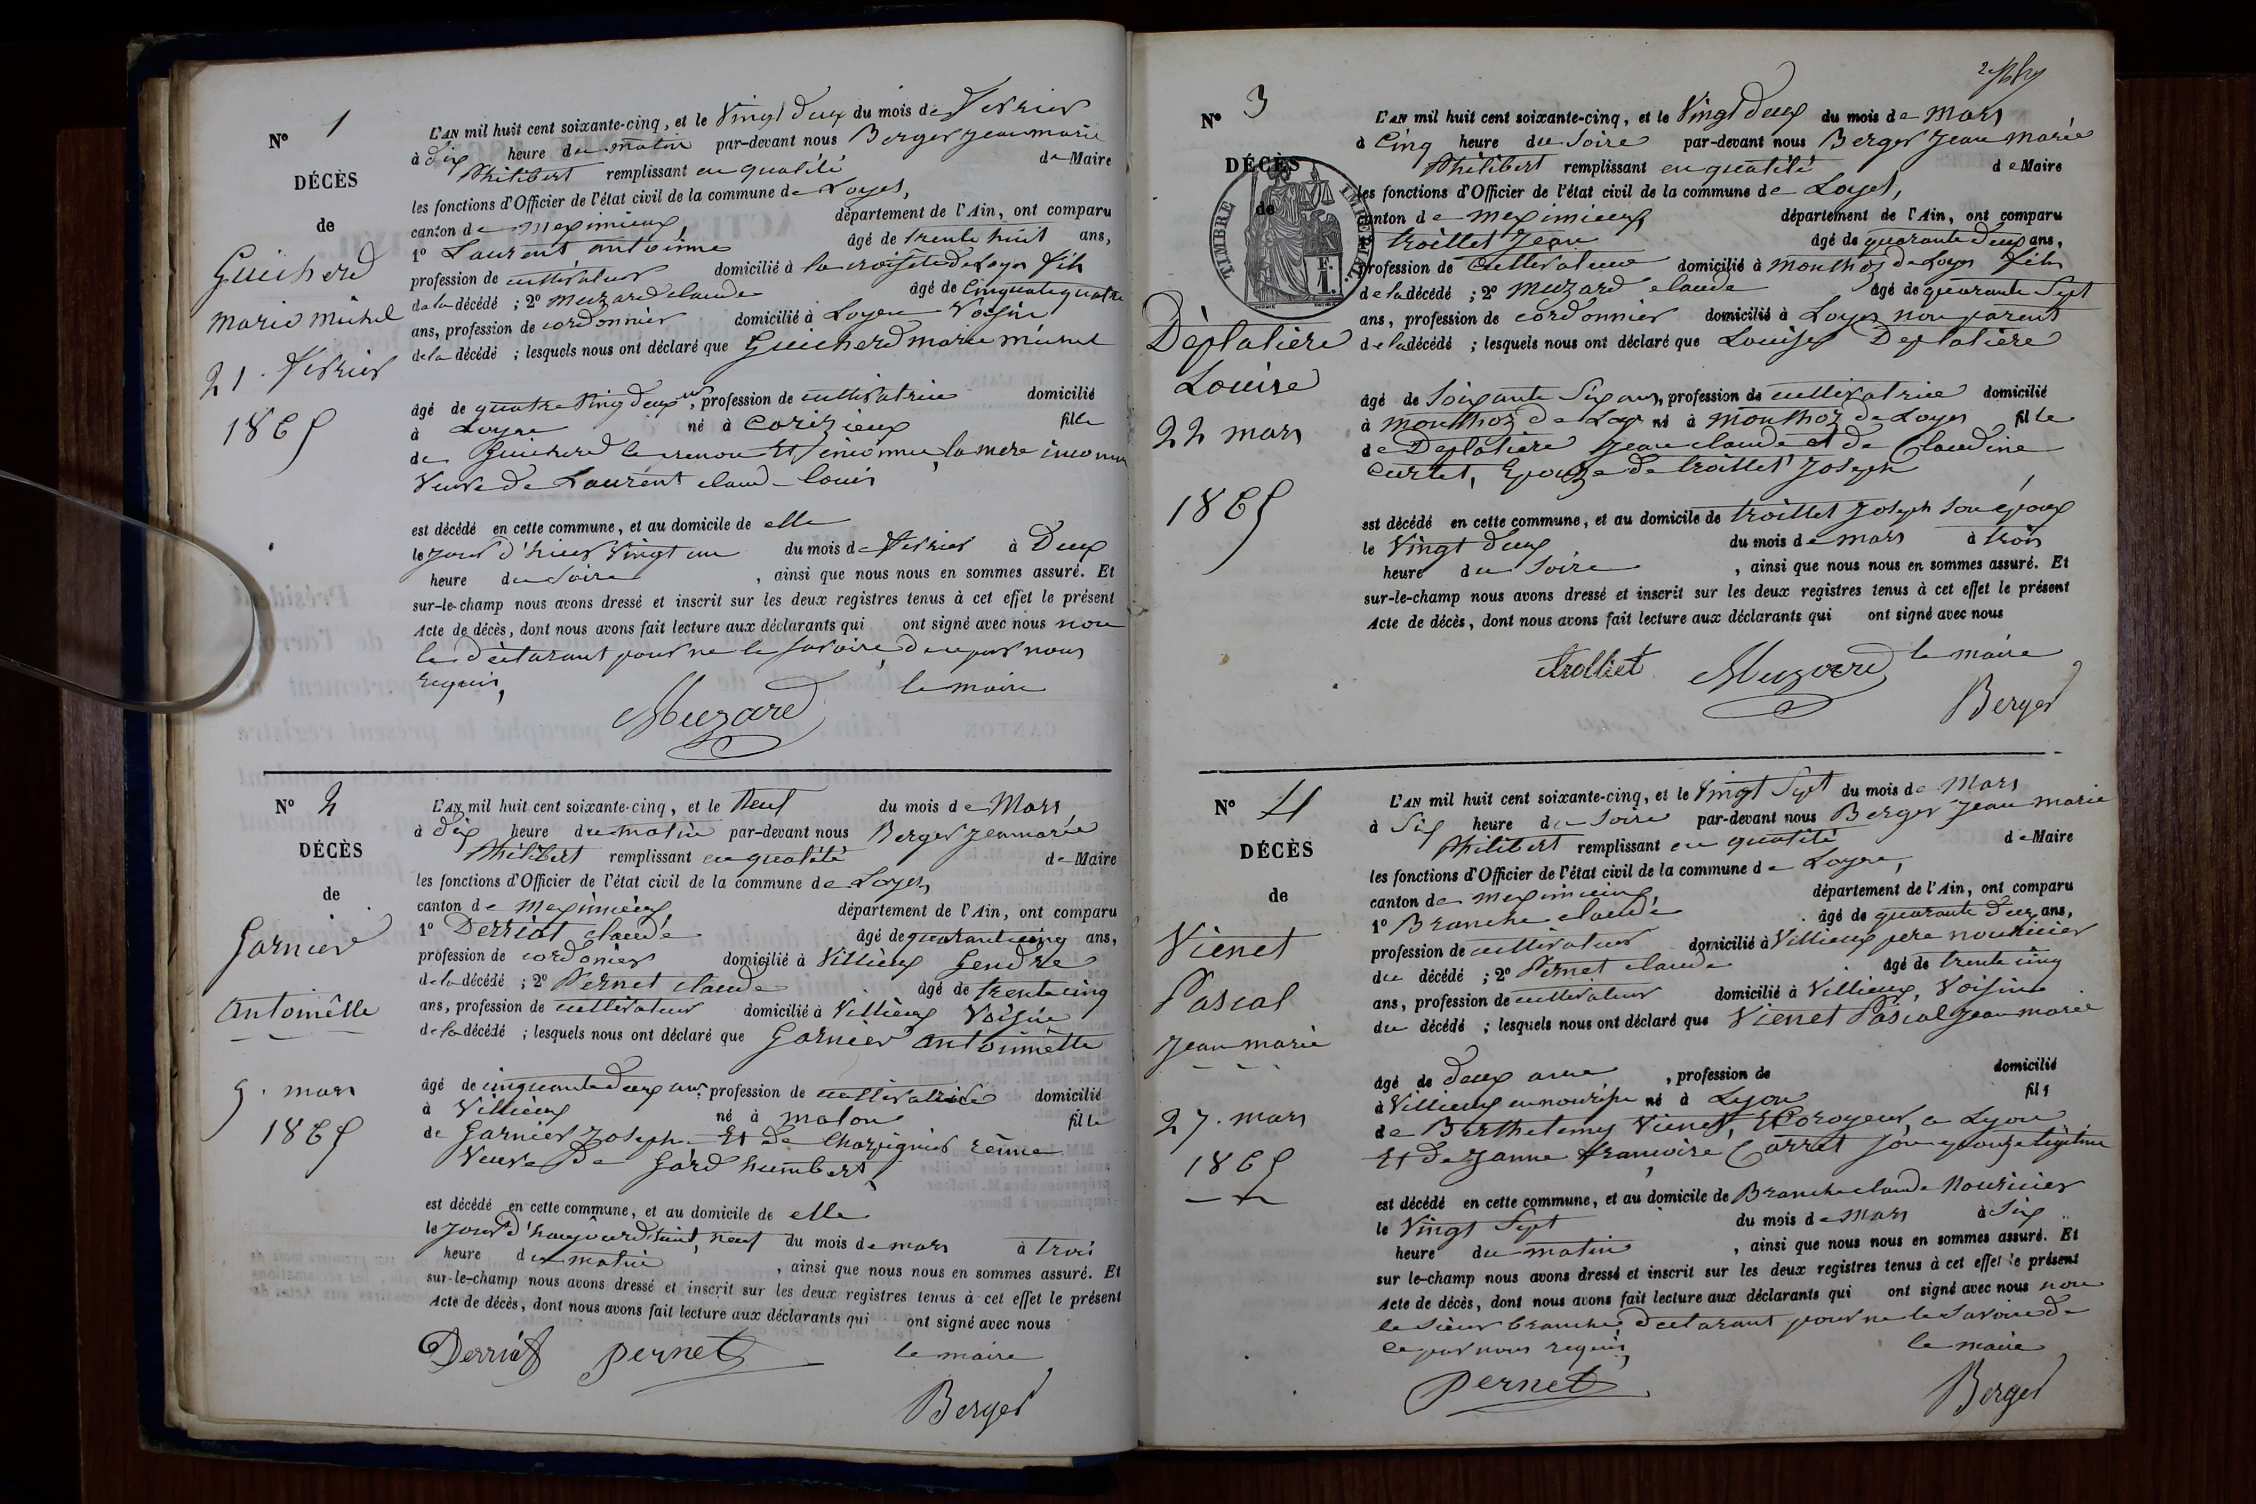 N° 1
DÉCÈS
de
Guicherd
marie michel
21 . fevrier
1865
L'AN mil huit cent soixante-cinq, et le Vingt deux du mois de fevrier
à dix heure du matin par-devant nous Berger jean marie
Philibert remplissant en qualité de Maire
les fonctions d'Officier de l'état civil de la commune de Loyes,
canton de meximieux, département de l'Ain, ont comparu
1° Laurent antoinne âgé de trente huit ans,
profession de cultivateur domicilié à la croisette de Loyes fils
de la décédé ; 2° muzard claude âgé de cinquate quatre
ans, profession de cordonnier domicilié à Loyes Voisin
de la décédé ; lesquels nous ont déclaré que Guicherd marie michel
âgé de quatre Ving deux ans, profession de cultivatrice domicilié
à Loyes né à Corizieux fille
de Guicherd le prenom Et inconnue, la mere inconnu
Veuve de Laurent claude louis
est décédé en cette commune, et au domicile de elle
le jour d'hier Vingt un du mois de fevrier à Deux
heure du Soire , ainsi que nous nous en sommes assuré. Et
sur-le-champ nous avons dressé et inscrit sur les deux registres tenus à cet effet le présent
Acte de décès, dont nous avons fait lecture aux déclarants qui ont signé avec nous non
le déclarant pour ne le savoire, de ce par nous
requis,
le maire
Muzard
N° 2
DÉCÈS
de
Garnier
Antoinette
9 . mars
1865
L'AN mil huit cent soixante-cinq, et le Neuf du mois de Mars
à dix heure du matin par-devant nous Berger jeanmarie
Philibert remplissant en qualité de Maire
les fonctions d'Officier de l'état civil de la commune de Loyes
canton de meximieux, département de l'Ain, ont comparu
1° Derriot claude âgé de quarant cinq ans,
profession de cordonier domicilié à Villieux Gendre
de la décédé ; 2° Pernet claude âgé de trente cinq
ans, profession de cultivateur domicilié à Villieux Voisin
de la décédé ; lesquels nous ont déclaré que Garnier antoinnette
âgé de cinquante deux ans profession de cultivatrice domicilié
à Villieux né à molon fille
de Garnier Joseph Et de Charpignier renne
Veuve de Gård humbert,
est décédé en cette commune, et au domicile de elle
le jour d'haujourdhuit, neuf du mois de mars à trois
heure du matin , ainsi que nous nous en sommes assuré. Et
sur-le-champ nous avons dressé et inscrit sur les deux registres tenus à cet effet le présent
Acte de décès, dont nous avons fait lecture aux déclarants qui ont signé avec nous
Derriot Pernet le maire
Berger
N° 3
DÉCÈS
de
TIMBRE IMPERIAL
Déplatiére
Louise
22 mars
1865
L'AN mil huit cent soixante-cinq, et le Vingt deux du mois de Mars
à Cinq heure du Soire par-devant nous Berger Jean Marie
Philibert remplissant en qualité de Maire
les fonctions d'Officier de l'état civil de la commune de Loyes,
canton de meximieux, département de l'Ain, ont comparu
troillet Jean âgé de quarante deux ans,
profession de cultivateur domicilié à monthoz de Loyes fils
de la décédé ; 2° muzard claude âgé de quarante Sept
ans, profession de cordonnier domicilié à Loyes non parent
de la décédé ; lesquels nous ont déclaré que Louise Deplatière
âgé de Soixante Six ans, profession de cultivatrice domicilié
à monthoz de Loy né à monthoz de Loyes fille
de Deplatiere Jean claude et de Claudine
Curtet, Epouse de troillet Joseph
est décédé en cette commune, et au domicile de troillet Joseph Son époux
le Vingt deux du mois de mars à trois
heure du Soire , ainsi que nous nous en sommes assuré. Et
sur-le-champ nous avons dressé et inscrit sur les deux registres tenus à cet effet le présent
Acte de décès, dont nous avons fait lecture aux déclarants qui ont signé avec nous
trolliet Muzard le maire
Berger
N° 4
DÉCÈS
de
Vienet
Pascal
Jean marie
27 . mars
1865
L'AN mil huit cent soixante-cinq, et le Vingt Sept du mois de Mars
à Six heure du Soire par-devant nous Berger Jean marie
Philibert remplissant en qualité de Maire
les fonctions d'Officier de l'état civil de la commune de Loyes,
canton de meximieux département de l'Ain, ont comparu
1° Branche claude âgé de quarante deux ans,
profession de cultivateur domicilié à Villieux pere nouricier
du décédé ; 2° Pernet claude âgé de trente cinq
ans, profession de cultivateur domicilié à Villieux, Voisin
du décédé ; lesquels nous ont déclaré que Vienet Pascal Jean marie
âgé de deux ans , profession de domicilié
à Villieux en nourisse né à Lyon fils
de Berthelemy Vienet, à Lyon
Et de Janne françoise Carrat Son epouze légitime
est décédé en cette commune, et au domicile de Branche claude Nouricier
le Vingt Sept du mois de Mars à Six
heure du matin , ainsi que nous nous en sommes assuré. Et
sur le-champ nous avons dressé et inscrit sur les deux registres tenus à cet effet le présent
Acte de décès, dont nous avons fait lecture aux déclarants qui ont signé avec nous non
le Sieur branche déclarant pour ne le Savoire de
ce par nous requis, le maire
Pernet
Berger